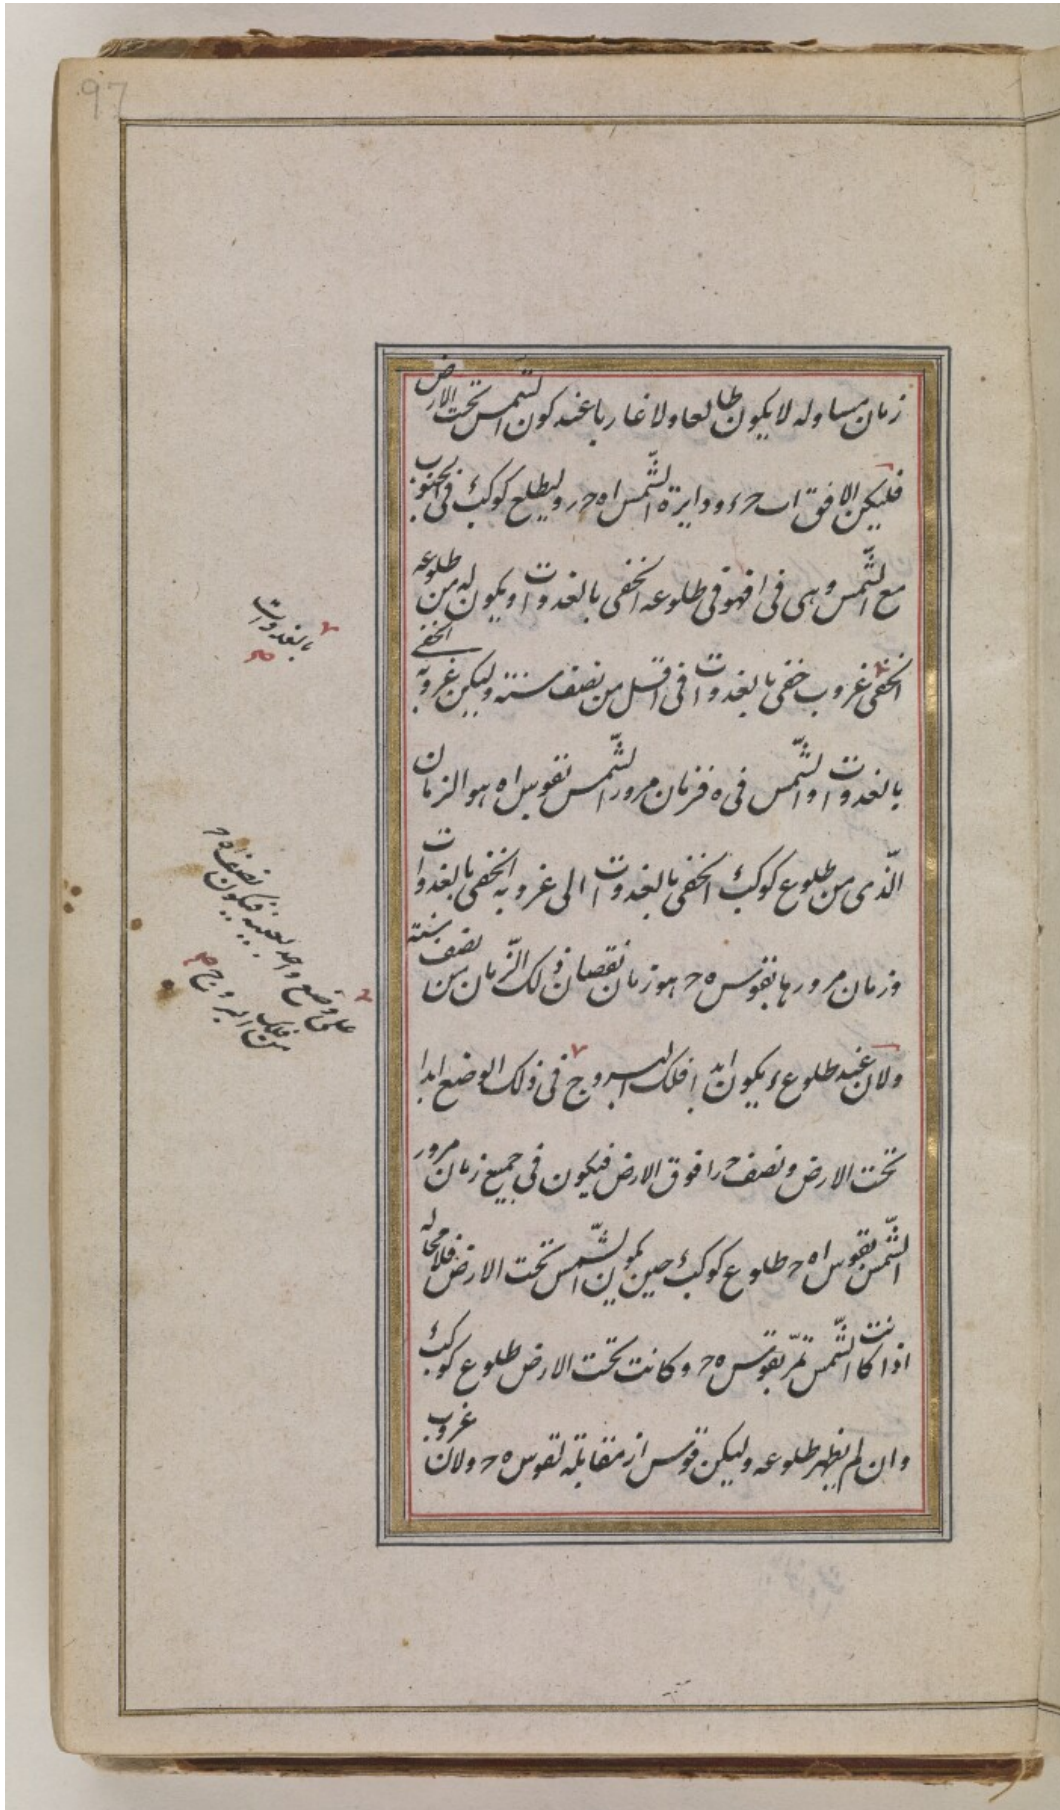 97
زمان مساو له لا يكون طالعا ولا غاربا عند كون الشمس تحت الارض
فليكن الافق اب حء ودايرة الشمس اه حر وليطلع كوكب ء فى الجنوب
مع الشمس وهى فى ا فهو فى طلوعه الخفى بالغدوات ا ويكون له من طلوعه
الخفى غروب خفى بالغدوات فى اقل من نصف سنته وليكن غروبه الخفى
بالغدوات ا والشمس فى ه فزمان مرور الشمس بقوس اه هو الزمان
الذى من طلوع كوكب ء الخفى بالغدوات ا الى غروبه الخفى بالغدوات
وزمان مرورها بقوس ه ح هو زمان نقصان ذلك الزمان من نصف سنته
ولان عند طلوع ء يكون ابدا فلك البروج فى ذلك الوضع ابدا
تحت الارض ونصف ح را فوق الارض فيكون فى جميع زمان مرور
الشمس بقوس اه ح طلوع كوكب ء حين يكون الشمس تحت الارض فلا محاله
اذا كانت الشمس تمر بقوس ه ح وكانت تحت الارض طلوع كوكب ء
وان لم يظهر طلوعه وليكن قوس ار مقابله لقوس ه ح ولان غروب
بالغدوات
صح
على وضع واحد بعينه فيكون نصف اه ح
من فلك البروج صح